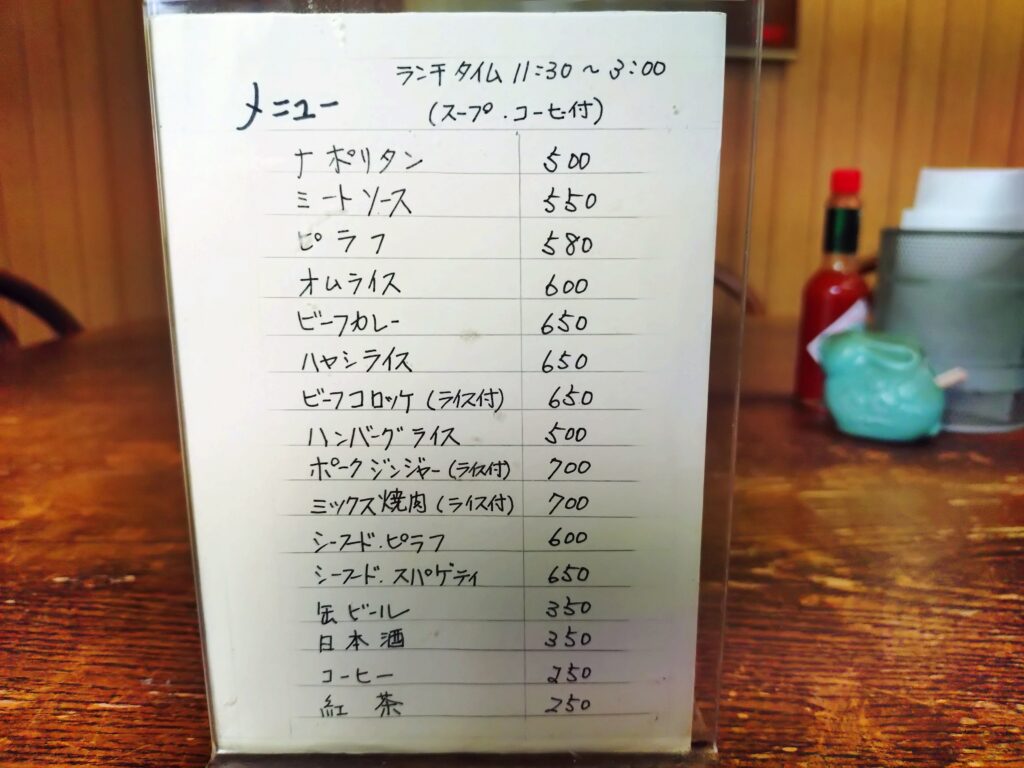 ランチタイム 11:30～3:00
メニュー
(スープ・コーヒー付)
ナポリタン 500
ミートソース 550
ピラフ 580
オムライス 600
ビーフカレー 650
ハヤシライス 650
ビーフコロッケ(ライス付) 650
ハンバーグライス 500
ポークジンジャー(ライス付) 700
ミックス焼肉(ライス付) 700
シーフード・ピラフ 600
シーフード・スパゲティ 650
缶ビール 350
日本酒 350
コーヒー 250
紅茶 250